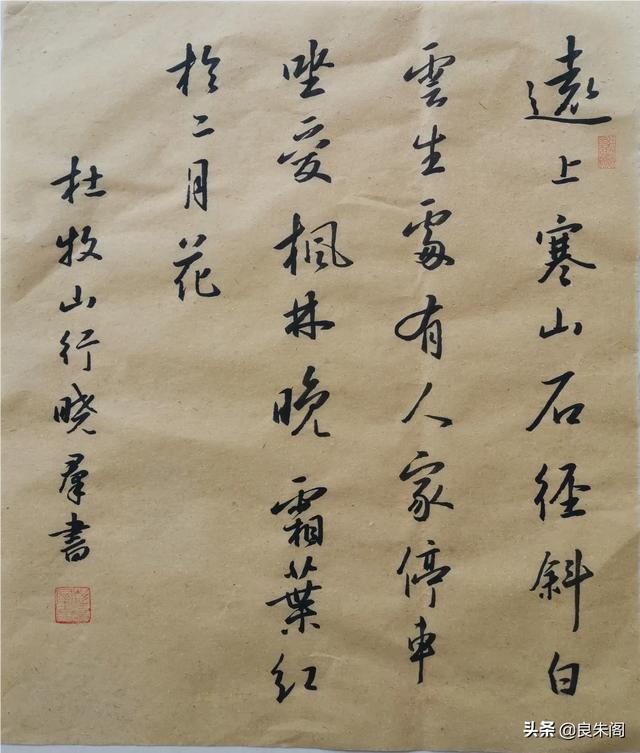 遠上寒山石徑斜白
雲生處有人家停車
坐愛楓林晚霜葉紅
於二月花
杜牧山行晓羣書
头条@良朱阁